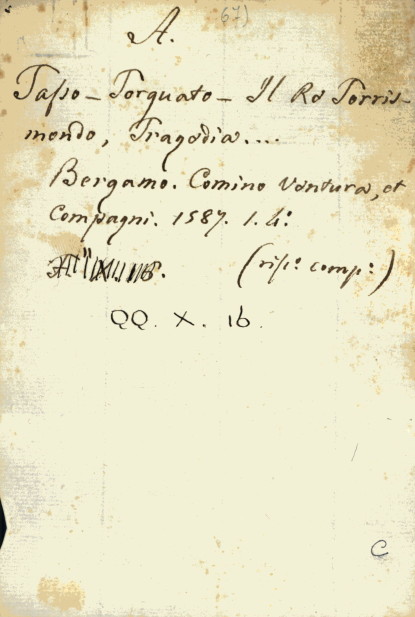 A. 67)
Tasso - Torquato - Il Re Torris-
mondo, Tragedia....
Bergamo. Comino Ventura, et
Compagni. 1587. 1. 4.º
(risp.º comp.º)
QQ. X. 16.
C